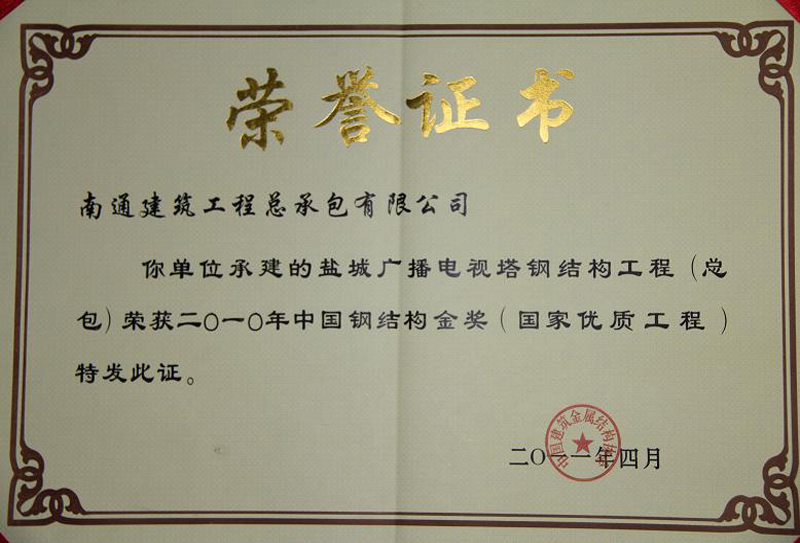 荣誉证书
南通建筑工程总承包有限公司
你单位承建的盐城广播电视塔钢结构工程(总
包)荣获二〇一〇年中国钢结构金奖(国家优质工程)
特发此证。
中国建筑金属结构协会
二〇一一年四月